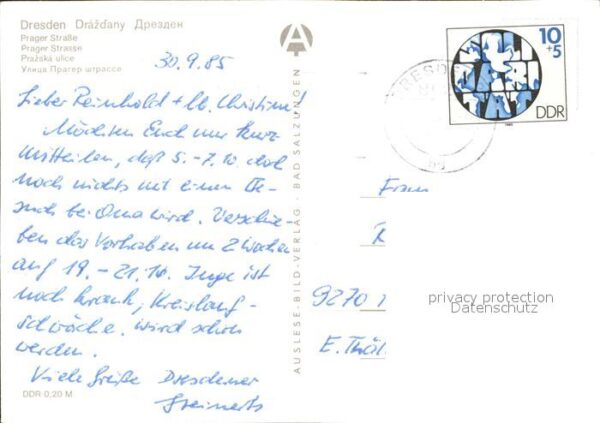 Dresden Drážďany Дрезден
Prager Straße
Prager Strasse
Pražská ulice
Улица Прагер штрассе
30.9.85
Lieber Reinhold + lb. Christine!
Möchten Euch nur kurz
mitteilen, daß 5.-7.10 doch
noch nichts mit einem Be-
such bei Oma wird. Verschie-
ben das Vorhaben um 2 Wochen
auf 19.-21.10. Inge ist
noch krank, Kreislauf-
schwäche. Wird schon
werden.
Viele Grüße Dresdener
Steinerts
DDR 0,20 M
AUSLESE-BILD-VERLAG · BAD SALZUNGEN
DRESDEN
10
+5
SOLI
DARI
TÄT
DDR
Frau
R
9270
E. Thäl
privacy protection
Datenschutz